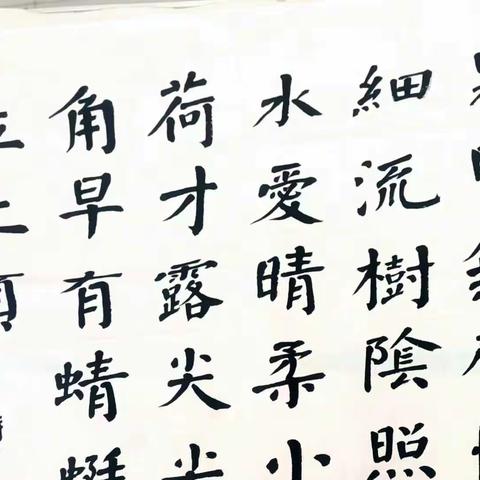 細流樹陰照
水愛晴柔小
荷才露尖尖
角早有蜻蜓